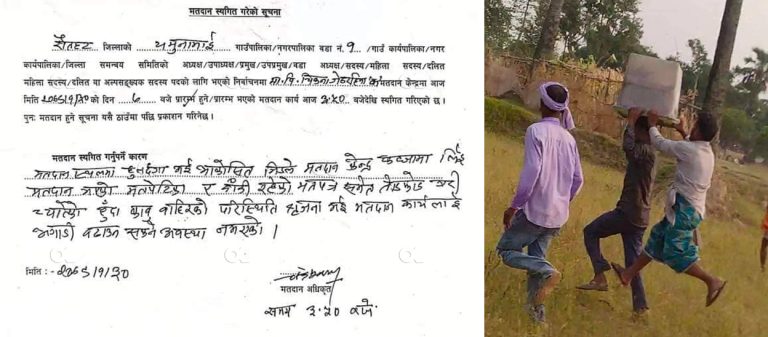 मतदान स्थगित गरेको सूचना
रौतहट जिल्लाको यमुनामाई गाउँपालिका/नगरपालिका वडा नं. 9 /गाउँ कार्यपालिका/नगर
कार्यपालिका/जिल्ला समन्वय समितिको अध्यक्ष/उपाध्यक्ष/प्रमुख/उपप्रमुख/वडा अध्यक्ष/सदस्य/महिला सदस्य/दलित
महिला सदस्य/दलित वा अल्पसङ्ख्यक सदस्य पदको लागि भएको निर्वाचनमा मतदान केन्द्रमा आज
मिति को दिन बजे प्रारम्भ हुने/प्रारम्भ भएको मतदान कार्य आज ३:२० बजेदेखि स्थगित गरिएको छ।
पुनः मतदान हुने सूचना यसै ठाउँमा पछि प्रकाशन गरिनेछ।
मतदान स्थगित गर्नुपर्ने कारण
मतदान स्थलमा हुलदंगा भई आक्रोशित भिडले मतदान केन्द्र कब्जामा लिई
मतदान भएको मतपेटिका र बाँकी रहेको मतपत्र समेत तोडफोड गरी
च्यातेको हुँदा काबु बाहिरको परिस्थिति सृजना भई मतदान कार्यलाई
अगाडी बढाउन सक्ने अवस्था नभएको।
मिति :-
मतदान अधिकृत
समय ३:२० बजे